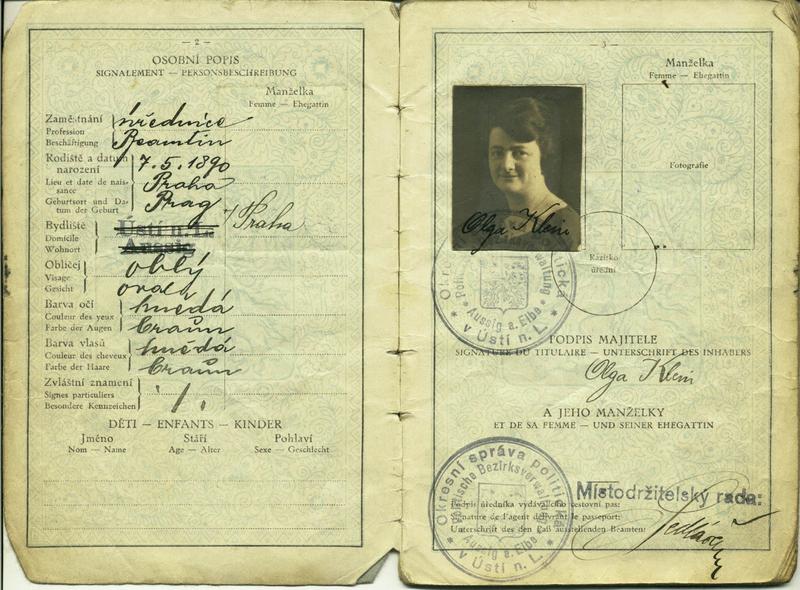 — 2 —
OSOBNÍ POPIS
SIGNALEMENT — PERSONSBESCHREIBUNG
Manželka
Femme — Ehegattin
Zaměstnání
Profession
Beschäftigung
úřednice
Beamtin
Rodiště a datum
narození
Lieu et date de nais-
sance
Geburtsort und Da-
tum der Geburt
7.5.1890
Praha
Prag
Bydliště
Domicile
Wohnort
Ústí n.L.
Aussig
Praha
Obličej
Visage
Gesicht
oblý
oval
Barva očí
Couleur des yeux
Farbe der Augen
hnědá
braun
Barva vlasů
Couleur des cheveux
Farbe der Haare
hnědá
braun
Zvláštní znamení
Signes particuliers
Besondere Kennzeichen
DĚTI — ENFANTS — KINDER
Jméno Stáří Pohlaví
Nom — Name Age — Alter Sexe — Geschlecht
— 3 —
Manželka
Femme — Ehegattin
Fotografie
Olga Klein
Razítko
úřední
Aussig a. Elbe
v Ústí n. L.
PODPIS MAJITELE
SIGNATURE DU TITULAIRE — UNTERSCHRIFT DES INHABERS
Olga Klein
A JEHO MANŽELKY
ET DE SA FEMME — UND SEINER EHEGATTIN
Okresní správa politická
Politische Bezirksverwaltung
Aussig a. Elbe
v Ústí n. L.
Místodržitelský rada:
Podpis úředníka vydávajícího cestovní pas:
Signature de l'agent délivrant le passeport:
Unterschrift des den Paß ausstellenden Beamten: